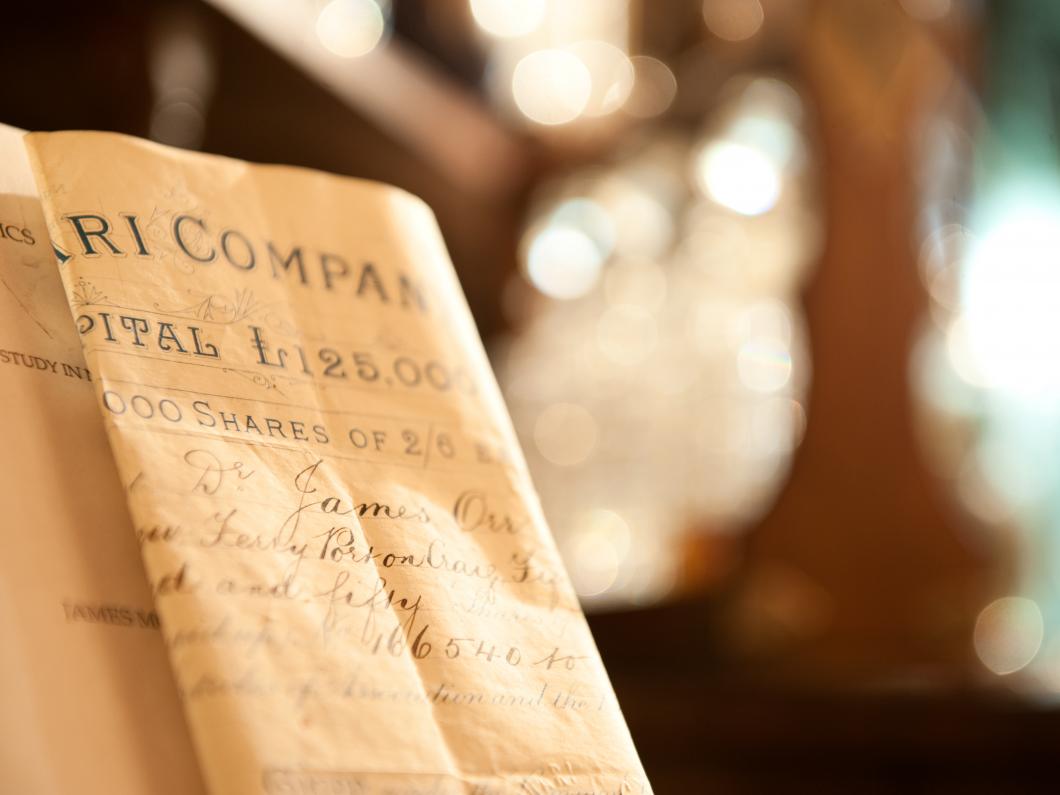 RRI COMPAN
PITAL £125,000
000 SHARES OF 2/6 E
Dr. James Orr
Ferry Port on Craig, Fif
and fifty Shares
166540 to
of Association and the
ICS
STUDY IN
JAMES M